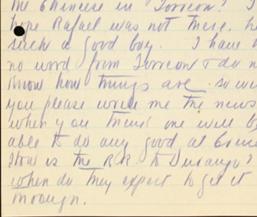 the Chinese in Torreon? I
hope Rafael was not there, he
such a good boy. I have
no word from Torreon & do n
know how things are - so wi
you please write me the news
when you think one will be
able to do any good at
How is the R.R. to Durango?
when do they expect to get it
through.